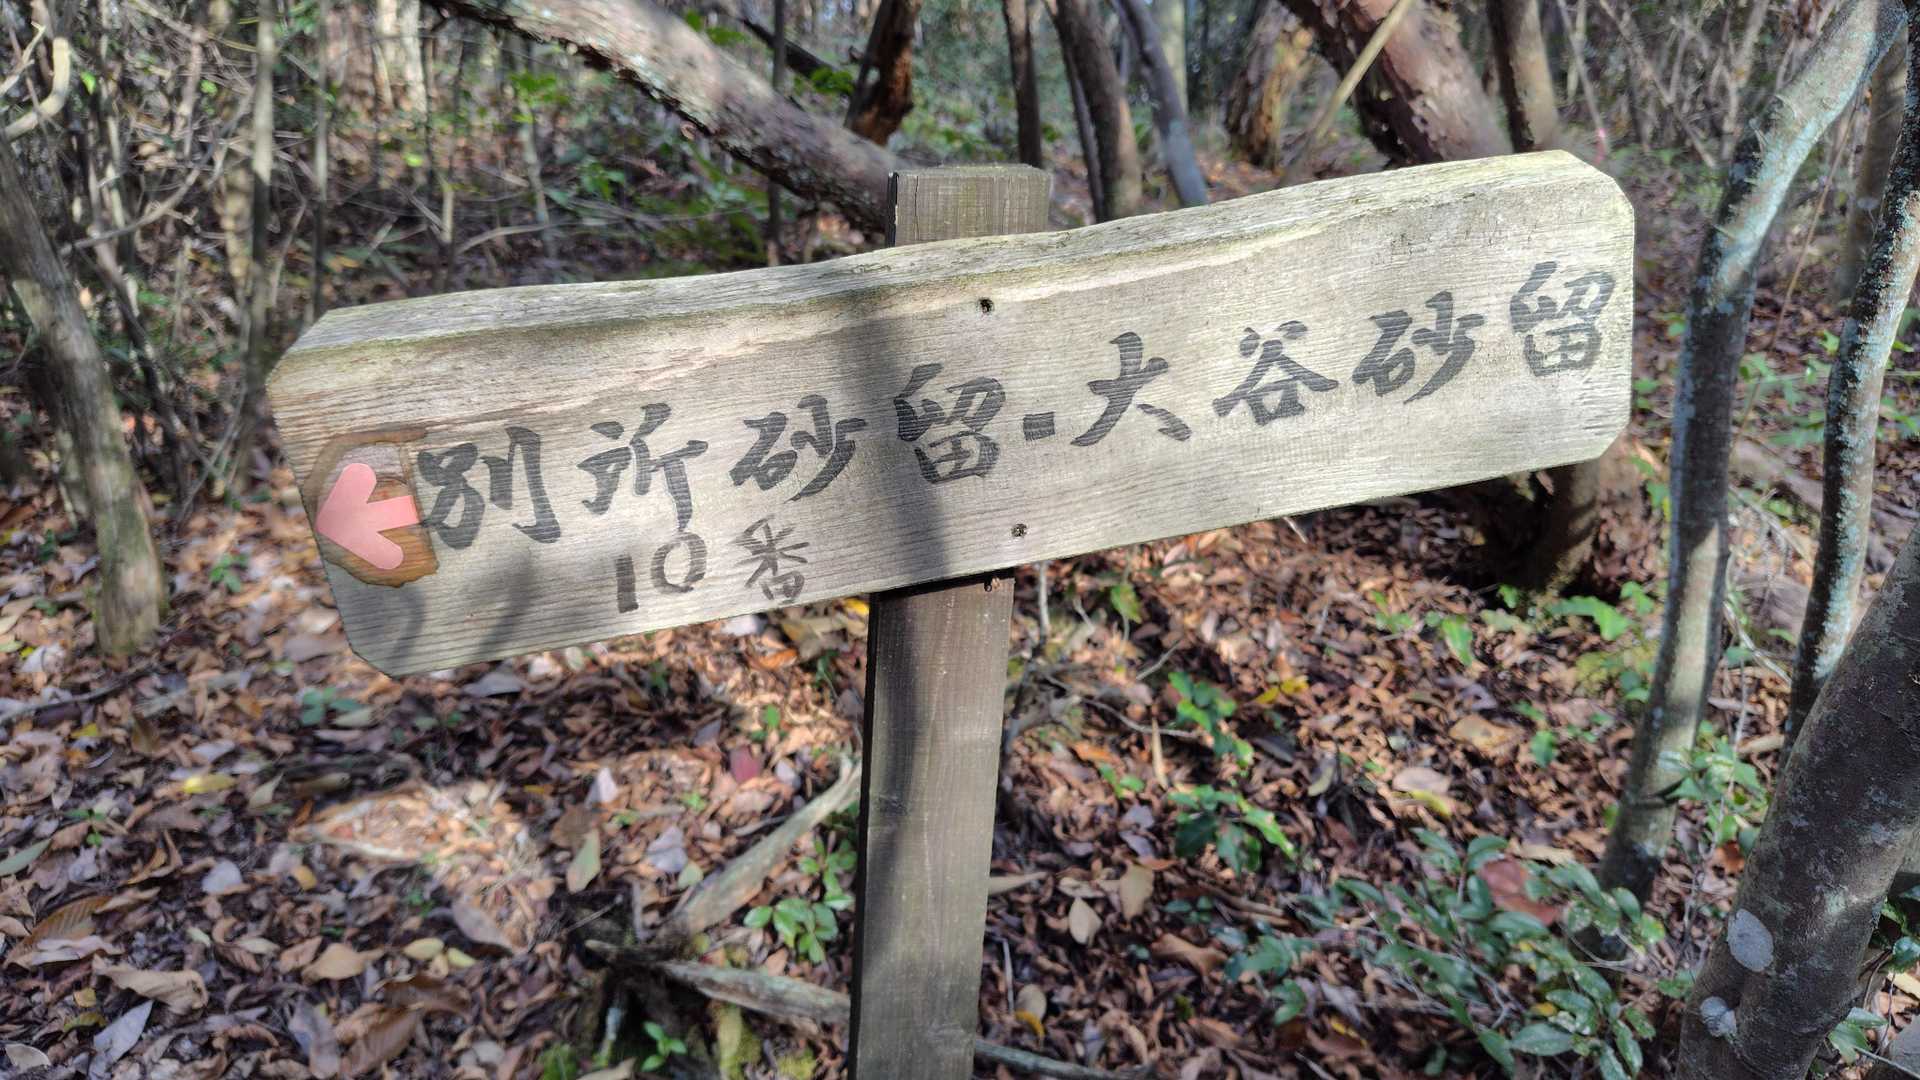 別所砂留・大谷砂留
10番